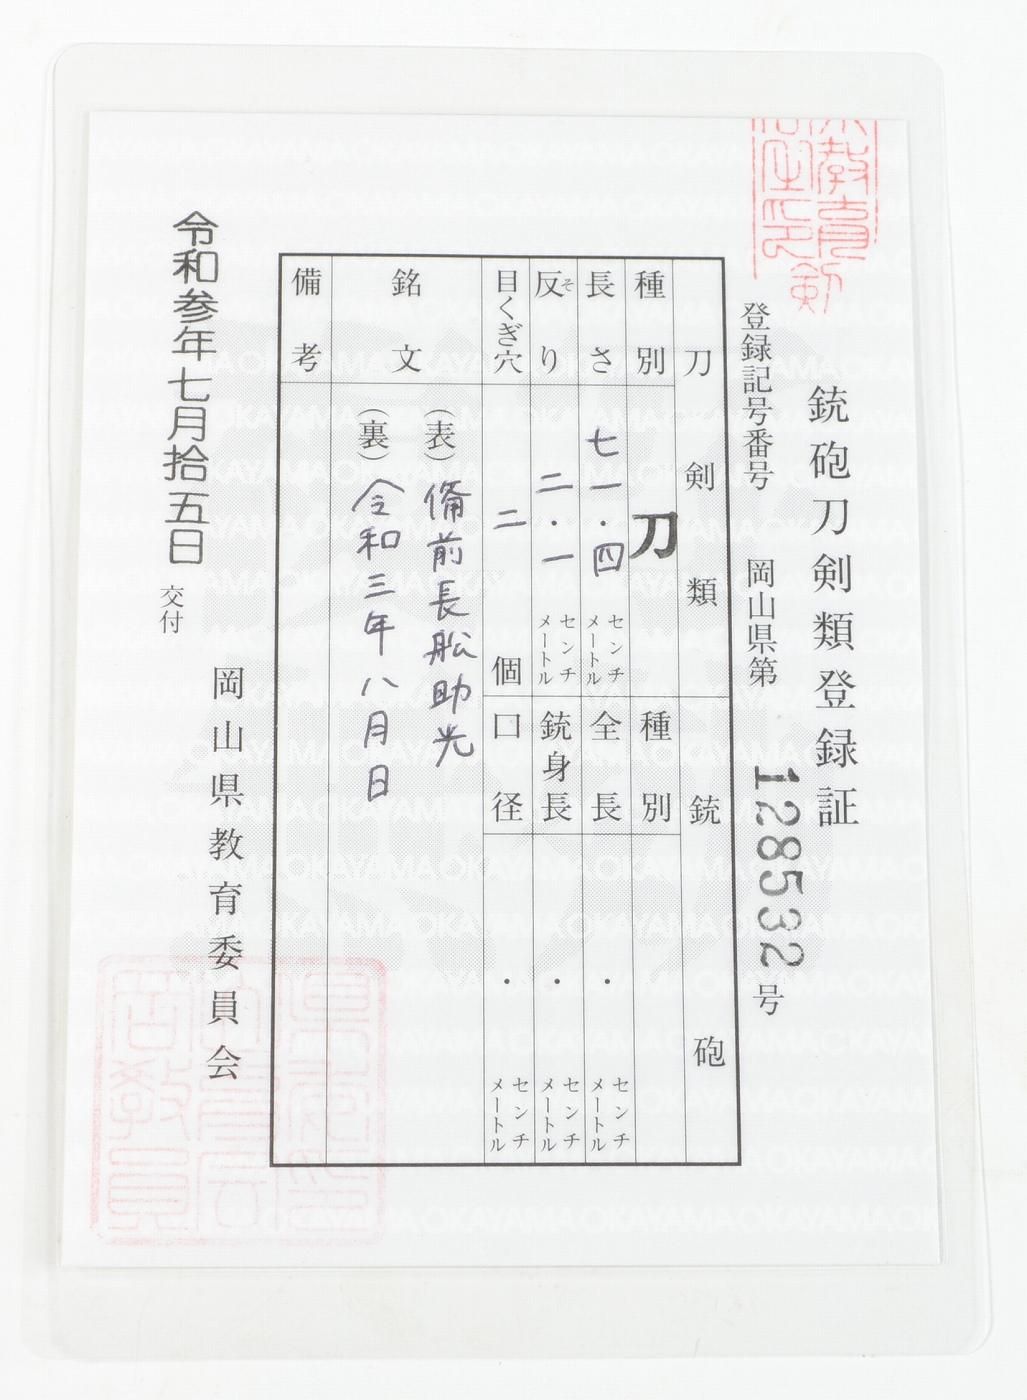 銃砲刀剣類登録証
登録記号番号 岡山県第 128532 号
刀剣類
種別 刀
長さ 七一・四 センチメートル
反り そ 二・一 センチメートル
目くぎ穴 二 個
銘文
(表) 備前長舩助光
(裏) 令和三年八月日
備考
銃砲
種別
全長 ・ センチメートル
銃身長 ・ センチメートル
口径 ・ センチメートル
令和参年七月拾五日 交付
岡山県教育委員会
OKAYAMA